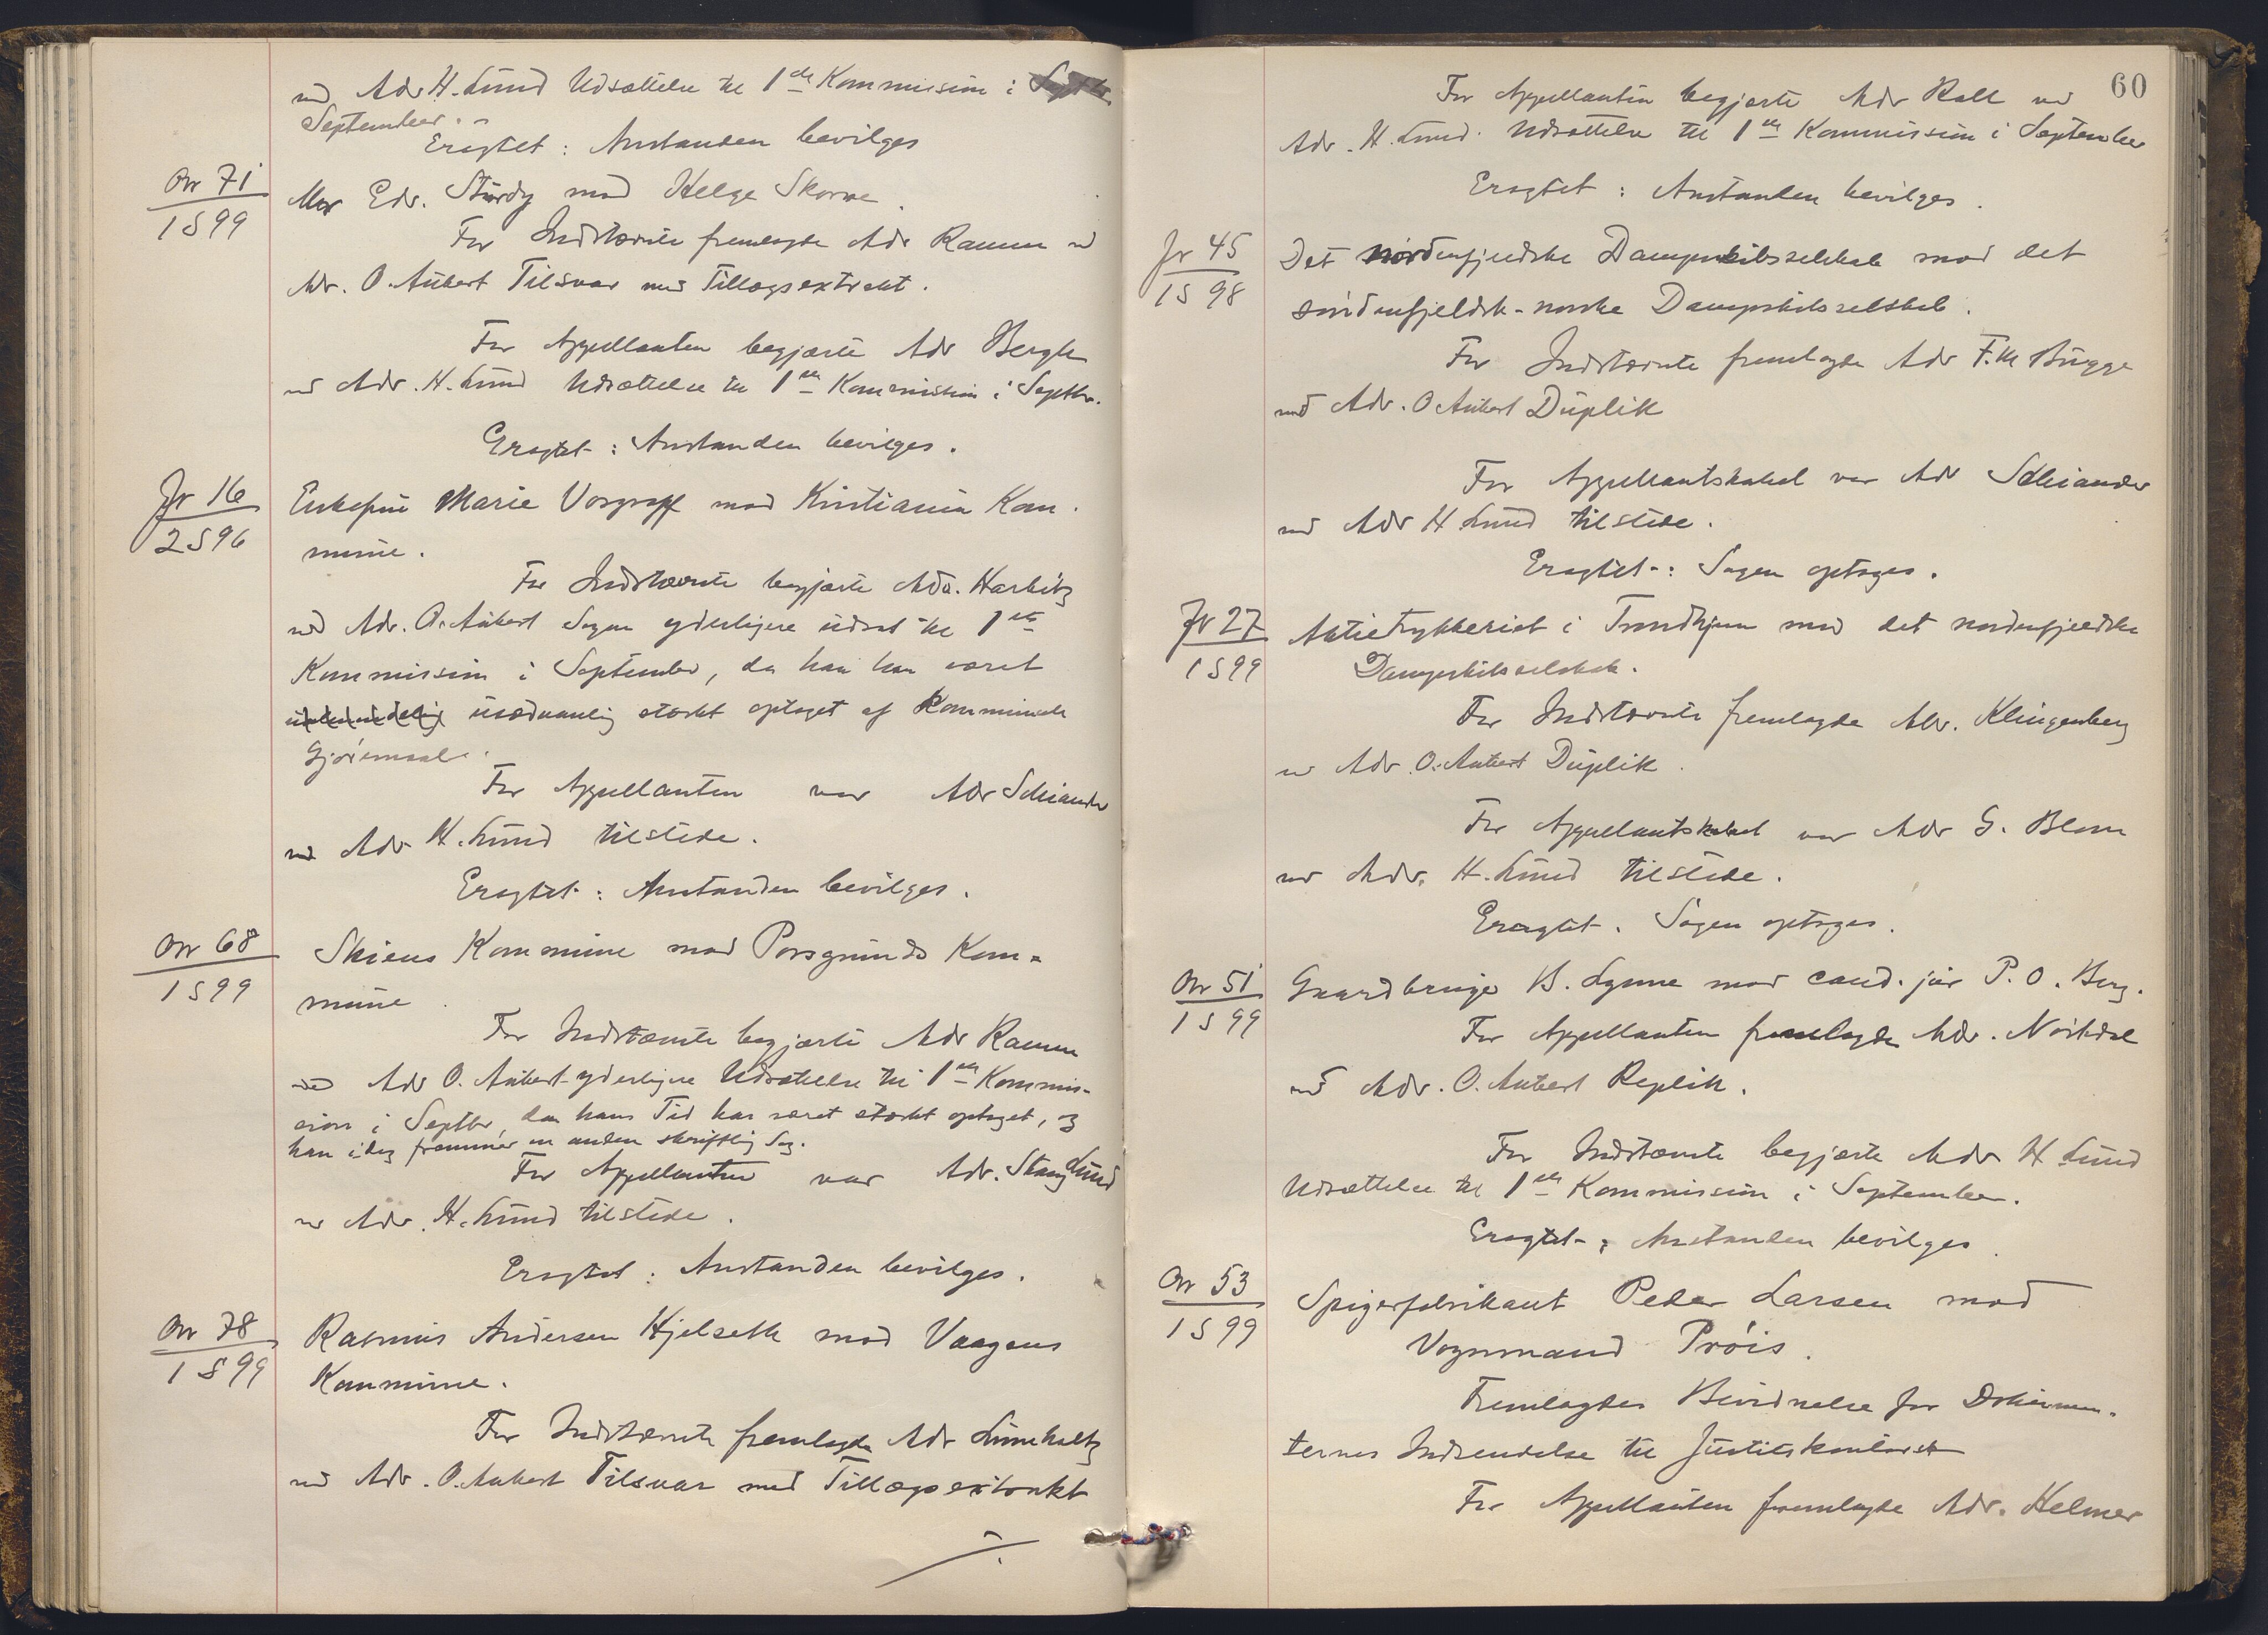 ved Adv H. Lund Udsættelse til 1ste Kommission i Septbr
September.
Eragtet: Anstanden bevilges
Or 71
1 S 99
Mr Edr. Sturdy mod Helge Skorve.
For Indstævnte fremlagde Adv Ramm v
Adv. O. Aubert Tilsvar med Tillægsextrakt.
For Appellanten begjærte Adv Bergh
ved Adv. H. Lund Udsættelse til 1ste Kommission i Septbr.
Eragtet: Anstanden bevilges.
Fr 16
2 S 96
Enkefru Marie Vosgraff mod Kristiania Kom-
mune.
For Indstævnte begjærte Adv. Harbitz
ved Adv. O. Aubert Sagen yderligere udsat til 1ste
Kommission i September, da han har været
usædvanlig stærkt optaget af kommunale
Gjøremaal.
For Appellanten var Adv Schiander
ved Adv H. Lund tilstede.
Eragtet: Anstanden bevilges.
Or 68
1 S 99
Skiens Kommune mod Porsgrunds Kom-
mune.
For Indstævnte begjærte Adv Ramm
ved Adv O. Aubert yderligere Udsættelse til 1ste Kommis-
sion i Septbr, da hans Tid har været stærkt optaget, og
han idag fremmer en anden skriftlig Sag.
For Appellanten var Adv. Stang Lund
v Adv. H. Lund tilstede.
Eragtet: Anstanden bevilges.
Or 78
1 S 99
Rasmus Andersen Hjelseth mod Vaagens
Kommune.
For Indstævnte fremlagde Adv Lumholtz
ved Adv. O. Aubert Tilsvar med Tillægsextrakt
60
For Appellanten begjærte Adv Roll ved
Adv. H. Lund Udsættelse til 1ste Kommission i September
Eragtet: Anstanden bevilges.
Fr 45
1 S 98
Det nordenfjeldske Dampskibsselskab mod det
søndenfjeldsk-norske Dampskibsselskab.
For Indstævnte fremlagde Adv F. M Bugge
ved Adv. O Aubert Duplik
For Appellantskabet var Adv Schiander
ved Adv H Lund tilstede.
Eragtet: Sagen optages.
Fr 27
1 S 99
Aktietrykkeriet i Trondhjem mod det nordenfjeldske
Dampskibsselskab.
For Indstævnte fremlagde Adv. Klingenberg
v Adv. O. Aubert Duplik.
For Appellantskabet var Adv G. Blom
ved Adv. H. Lund tilstede.
Eragtet. Sagen optages.
Or 51
1 S 99
Gaardbruger B. Lynne mod cand. jur P. O. Berg.
For Appellanten fremlagde Adv. Nørkdal
ved Adv. O. Aubert Replik.
For Indstævnte begjærte Adv H Lund
Udsættelse til 1ste Kommission i September.
Eragtet: Anstanden bevilges.
Or 53
1 S 99
Spigerfabrikant Peder Larsen mod
Vognmand Prøis.
Fremlagdes Bevidnelse for Dokumen-
ternes Indsendelse til Justitskontoret
For Appellanten fremlagde Adv. Helmer